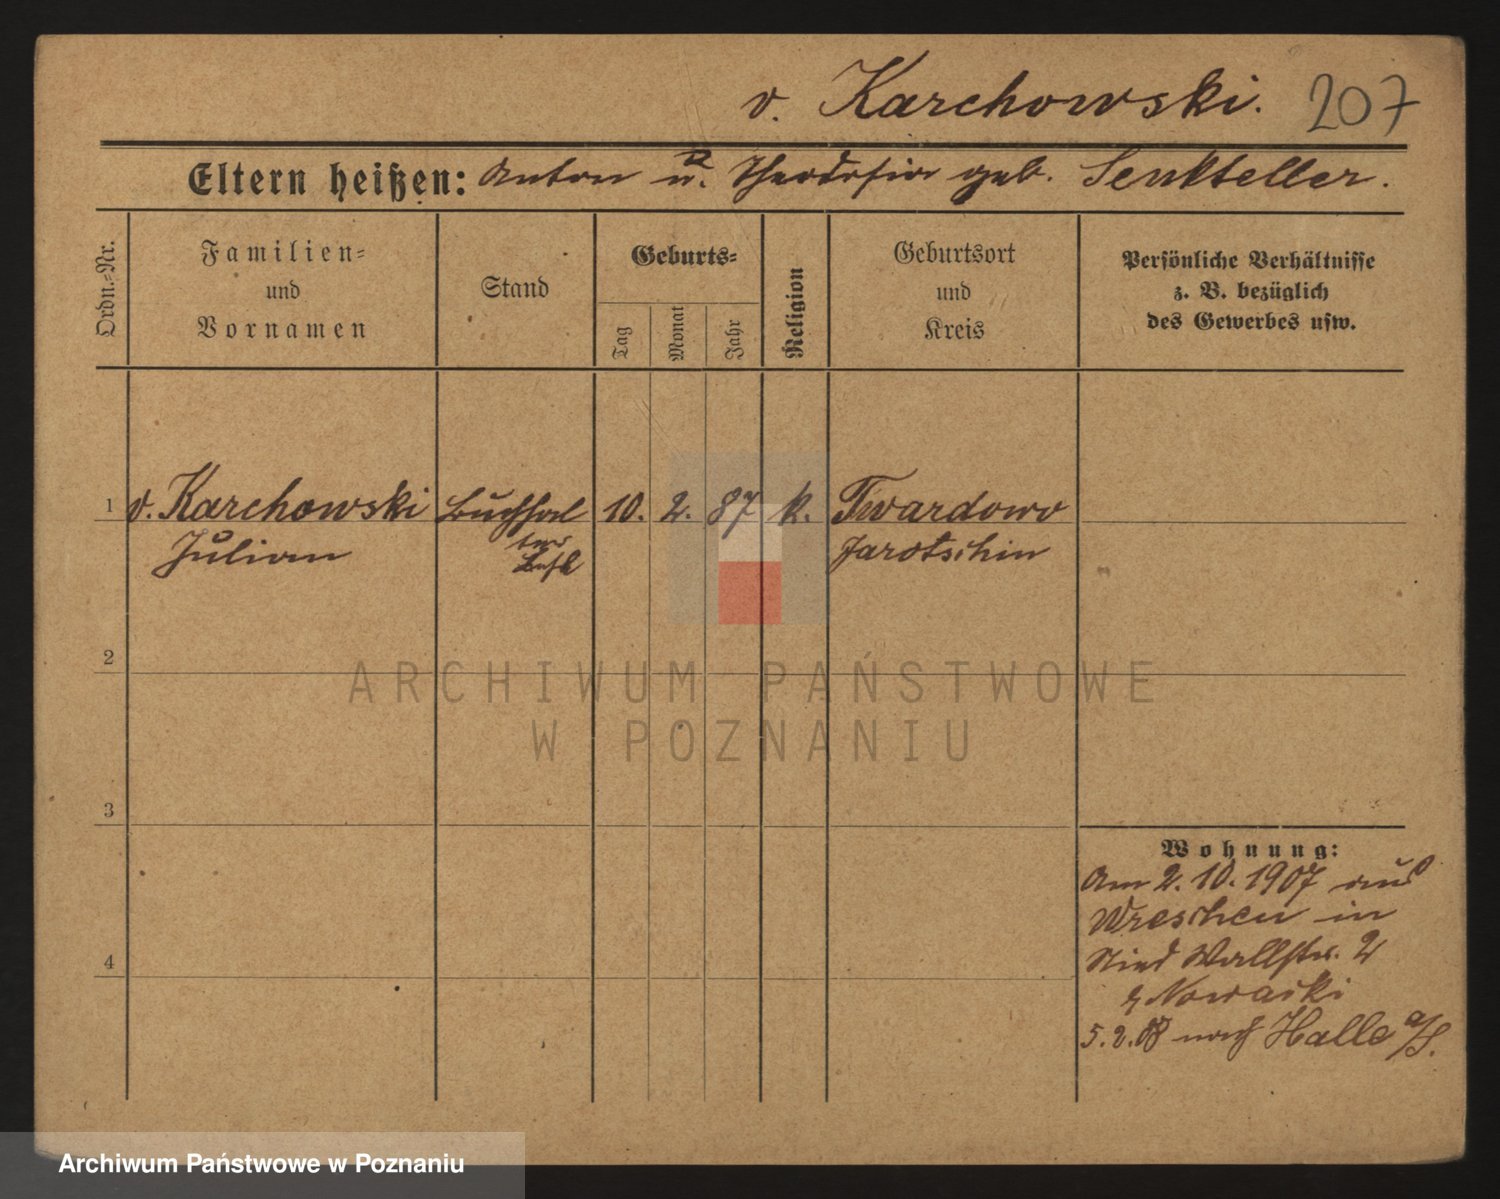 v. Karchowski. 207
Eltern heißen: Anton u. Theodosia geb. Senkteller.
Ordn.-Nr.
Familien-
und
Vornamen
Stand
Geburts-
Tag
Monat
Jahr
Religion
Geburtsort
und
Kreis
Persönliche Verhältnisse
z. B. bezüglich
des Gewerbes usw.
1 v. Karchowski Buchhal 10. 2. 87 k. Twardowo
Julian ter Jarotschin
2
3
4
ARCHIWUM PAŃSTWOWE
W POZNANIU
Wohnung:
Am 2. 10. 1907 aus
Wreschen in
Wallstr. 2
Nowacki
5. 2. 08 nach Halle a/S.
Archiwum Państwowe w Poznaniu